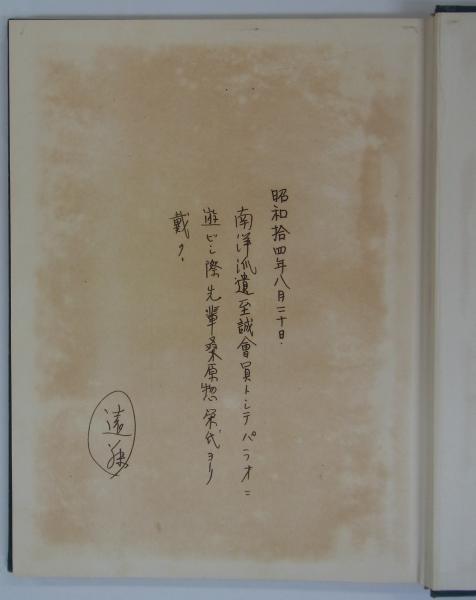 昭和拾四年八月二十日.
南洋派遣至誠會員トシテパラオニ
遊ビシ際先輩桑原惣栄氏ヨリ
戴ク.
遠藤